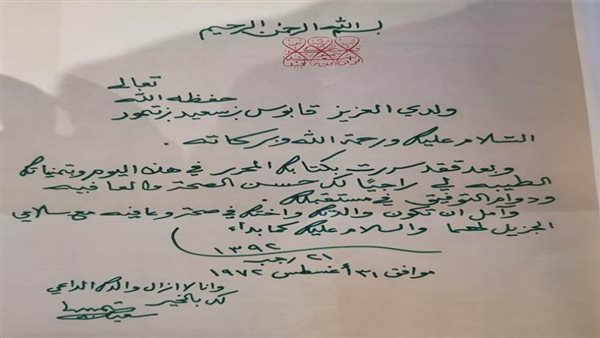 بسم الله الرحمن الرحيم
تعالى
حفظه الله
ولدي العزيز قابوس بن سعيد بن تيمور
السلام عليك ورحمة الله وبركاته .
وبعد فقد سررت بكتابك المحرر في هذه اليوم وتمنياتك
الطيبه في راجيًا لك حسن الصحة والعافيه
ودوام التوفيق في مستقبلك .
وآمل ان تكون والدتك واختك في صحة وعافيه مع سلامي
الجزيل لهما والسلام عليك كما بداء
٢١ رجب ١٣٩٢
موافق ٣١ أغسطس ١٩٧٢
وانا لا ازال والدك الداعي
لك بالخير
سعيد بن تيمور